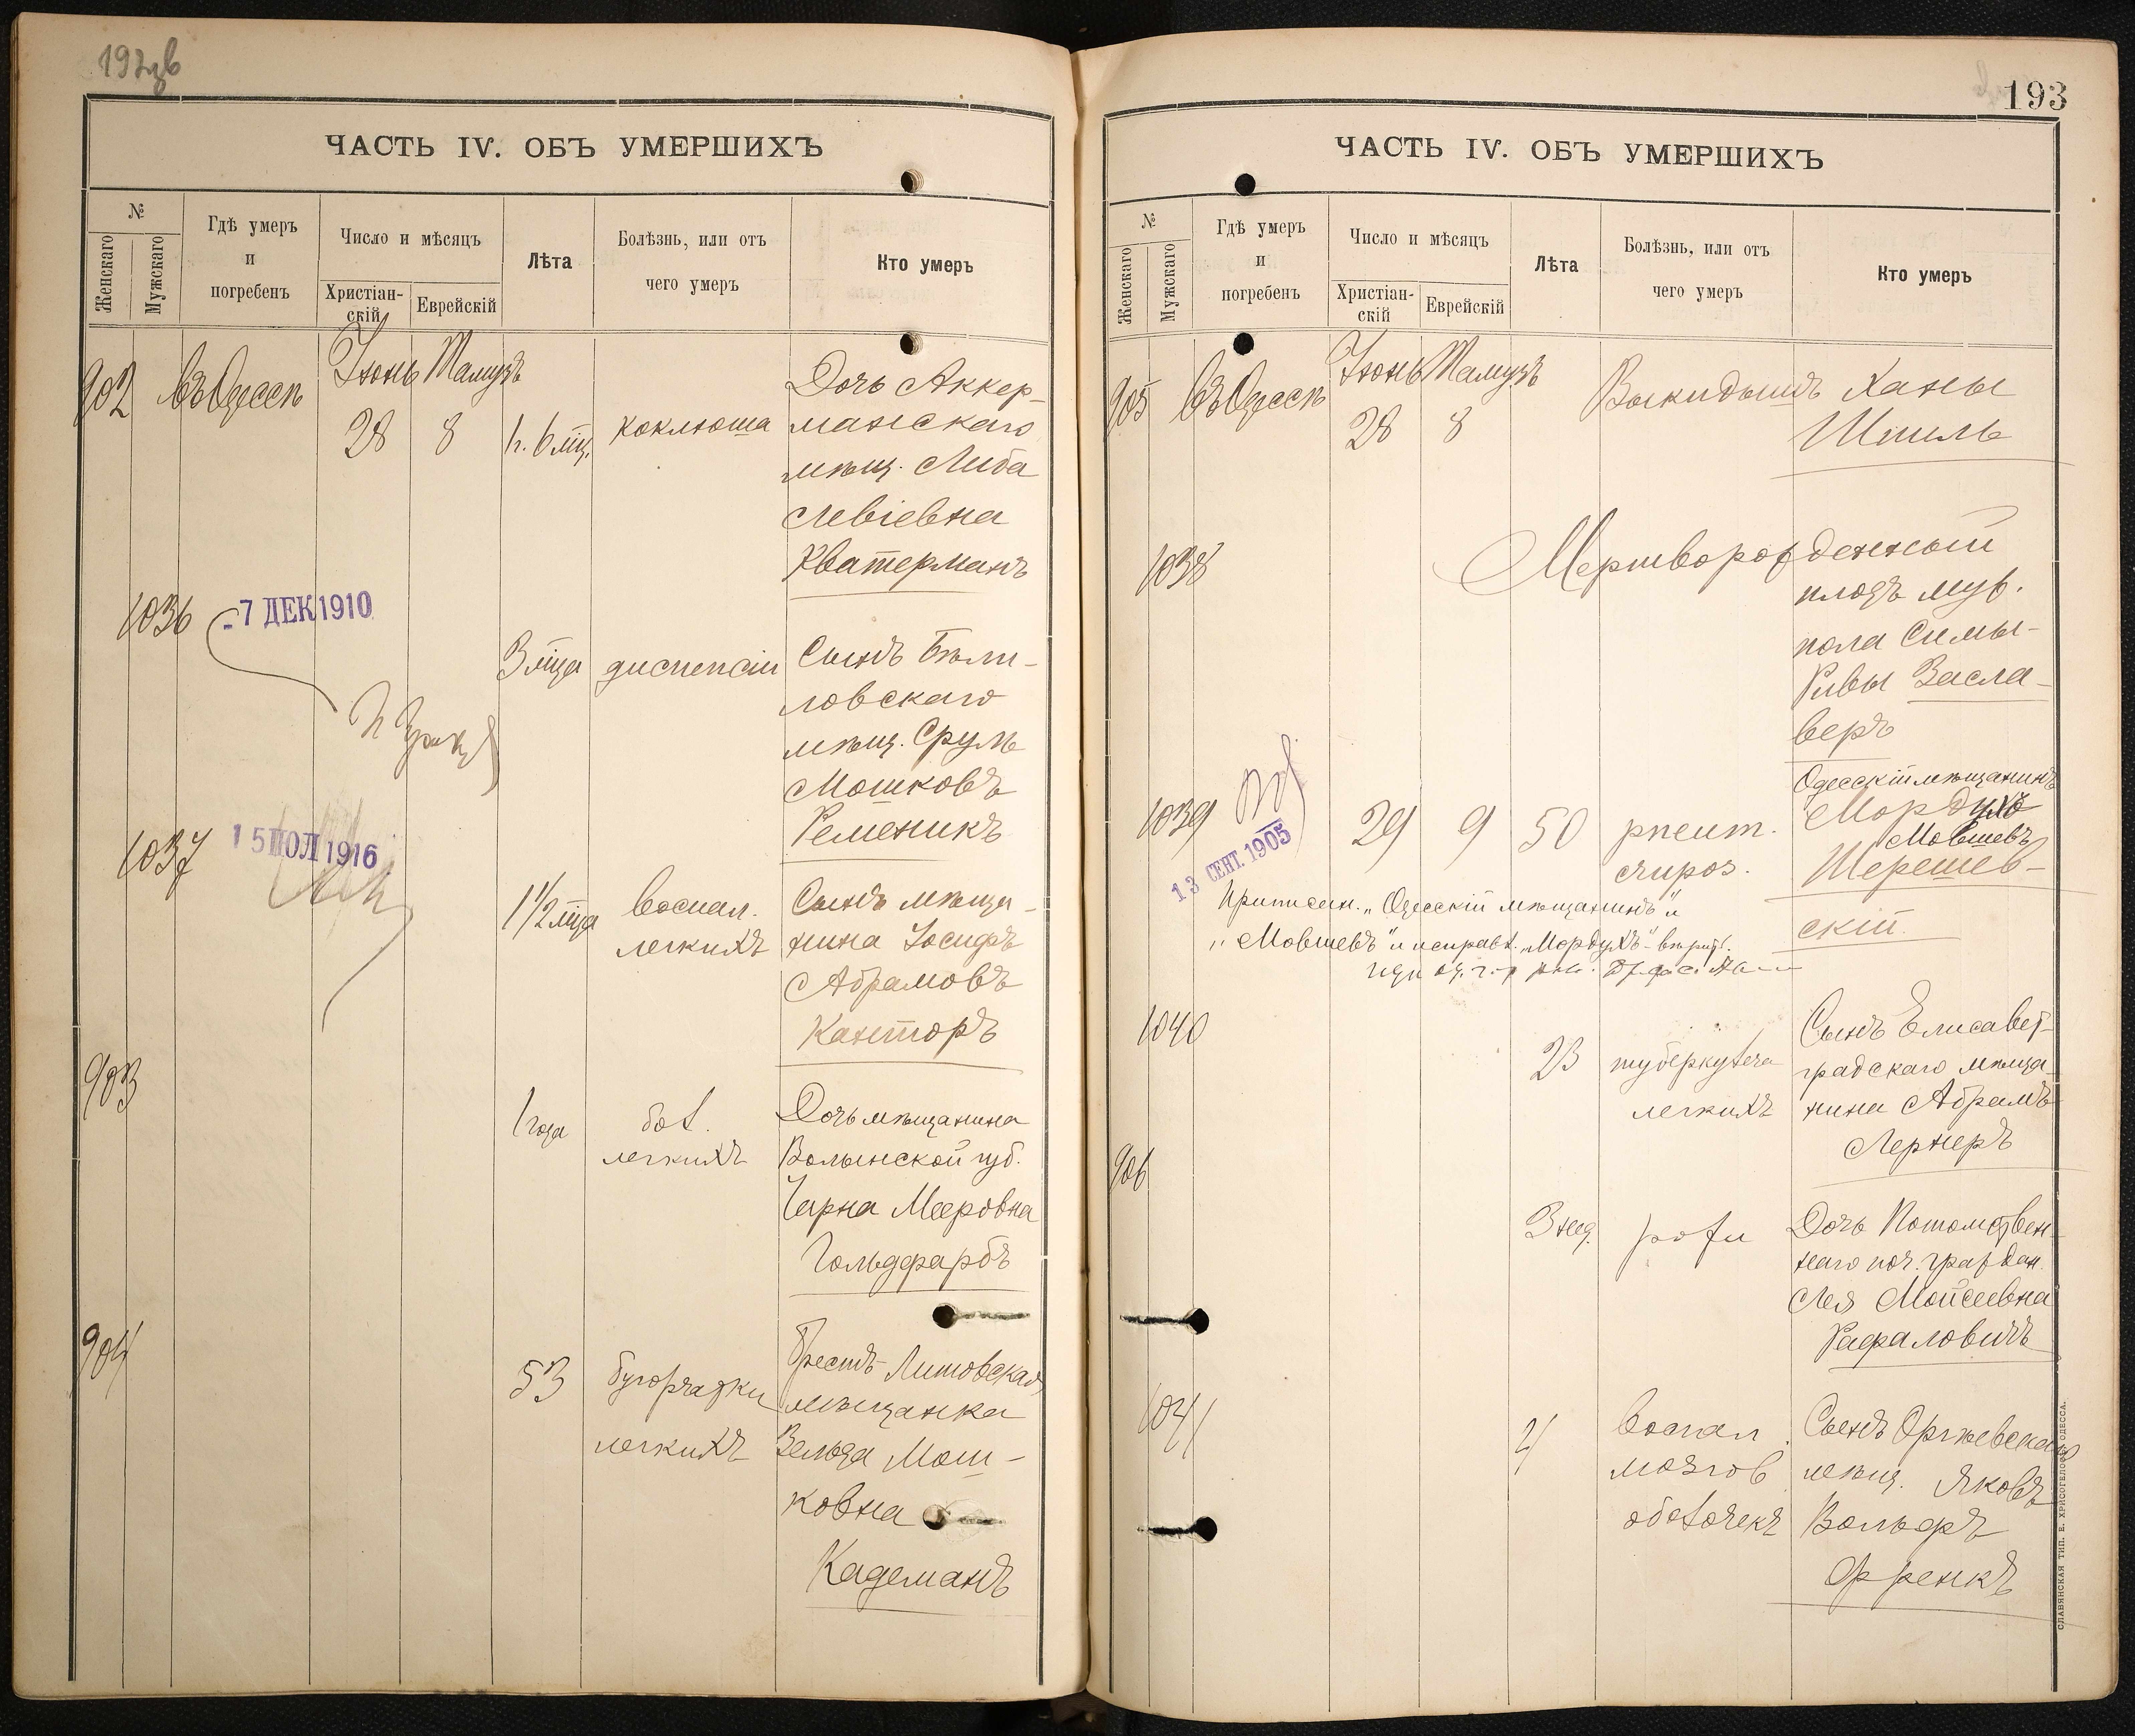 ЧАСТЬ IV. ОБЪ УМЕРШИХЪ
№
Женскаго
Мужскаго
Гдѣ умеръ
и
погребенъ
Число и мѣсяцъ
Христіан-
скій
Еврейскій
Лѣта
Болѣзнь, или отъ
чего умеръ
Кто умеръ
902
въ Одессѣ
Іюнь Тамузъ
28 8
1 г. 6 мц.
коклюша
Дочь Аккер-
манскаго
мѣщ. Либа
Левіевна
Кватерманъ
1036
-7 ДЕК 1910
3 м͠ца
диспепсіи
Сынъ Бѣли-
ловскаго
мѣщ. Сруль
Мошковъ
Ременикъ
1037
15 ИЮЛ 1916
1 1/2 м͠ца
воспал.
легкихъ
Сынъ мѣща-
нина Іосифъ
Абрамовъ
Канторъ
903
1 года
бол.
легкихъ
Дочь мѣщанина
Волынской губ.
Чарна Мееровна
Гольдфарбъ
904
53
бугорчатки
легкихъ
Брестъ-Литовская
мѣщанка
Зельда Мош-
ковна
Кадеманъ
193
ЧАСТЬ IV. ОБЪ УМЕРШИХЪ
№
Женскаго
Мужскаго
Гдѣ умеръ
и
погребенъ
Число и мѣсяцъ
Христіан-
скій
Еврейскій
Лѣта
Болѣзнь, или отъ
чего умеръ
Кто умеръ
905
въ Одессѣ
Іюнь Тамузъ
28 8
Выкидышъ Ханы
Шпиль
1038
Мертворожденный
плодъ муж.
пола Симы-
Ривы Засла-
веръ
1039
13 СЕНТ. 1905
29 9 50
Одесскій мѣщанинъ
Мордухъ
Мовшевъ
Шерешев-
скій
Приписан. „Одесскій мѣщанинъ" и
„Мовшевъ" и исправл. „Мордухъ"
1040
23
туберкулеза
легкихъ
Сынъ Елисавет-
градскаго мѣща-
нина Абрамъ
Лернеръ
906
3 нед.
рожи
Дочь Потомствен-
наго поч. граждан.
Лея Мойсеевна
Рафаловичъ
1041
воспал.
мозгов.
оболочекъ
Сынъ Оргѣевскаго
мѣщ. Яковъ
Вольфъ
Френкъ
СЛАВЯНСКАЯ ТИП. Е. ХРИСОГЕЛОСЪ, ОДЕССА.